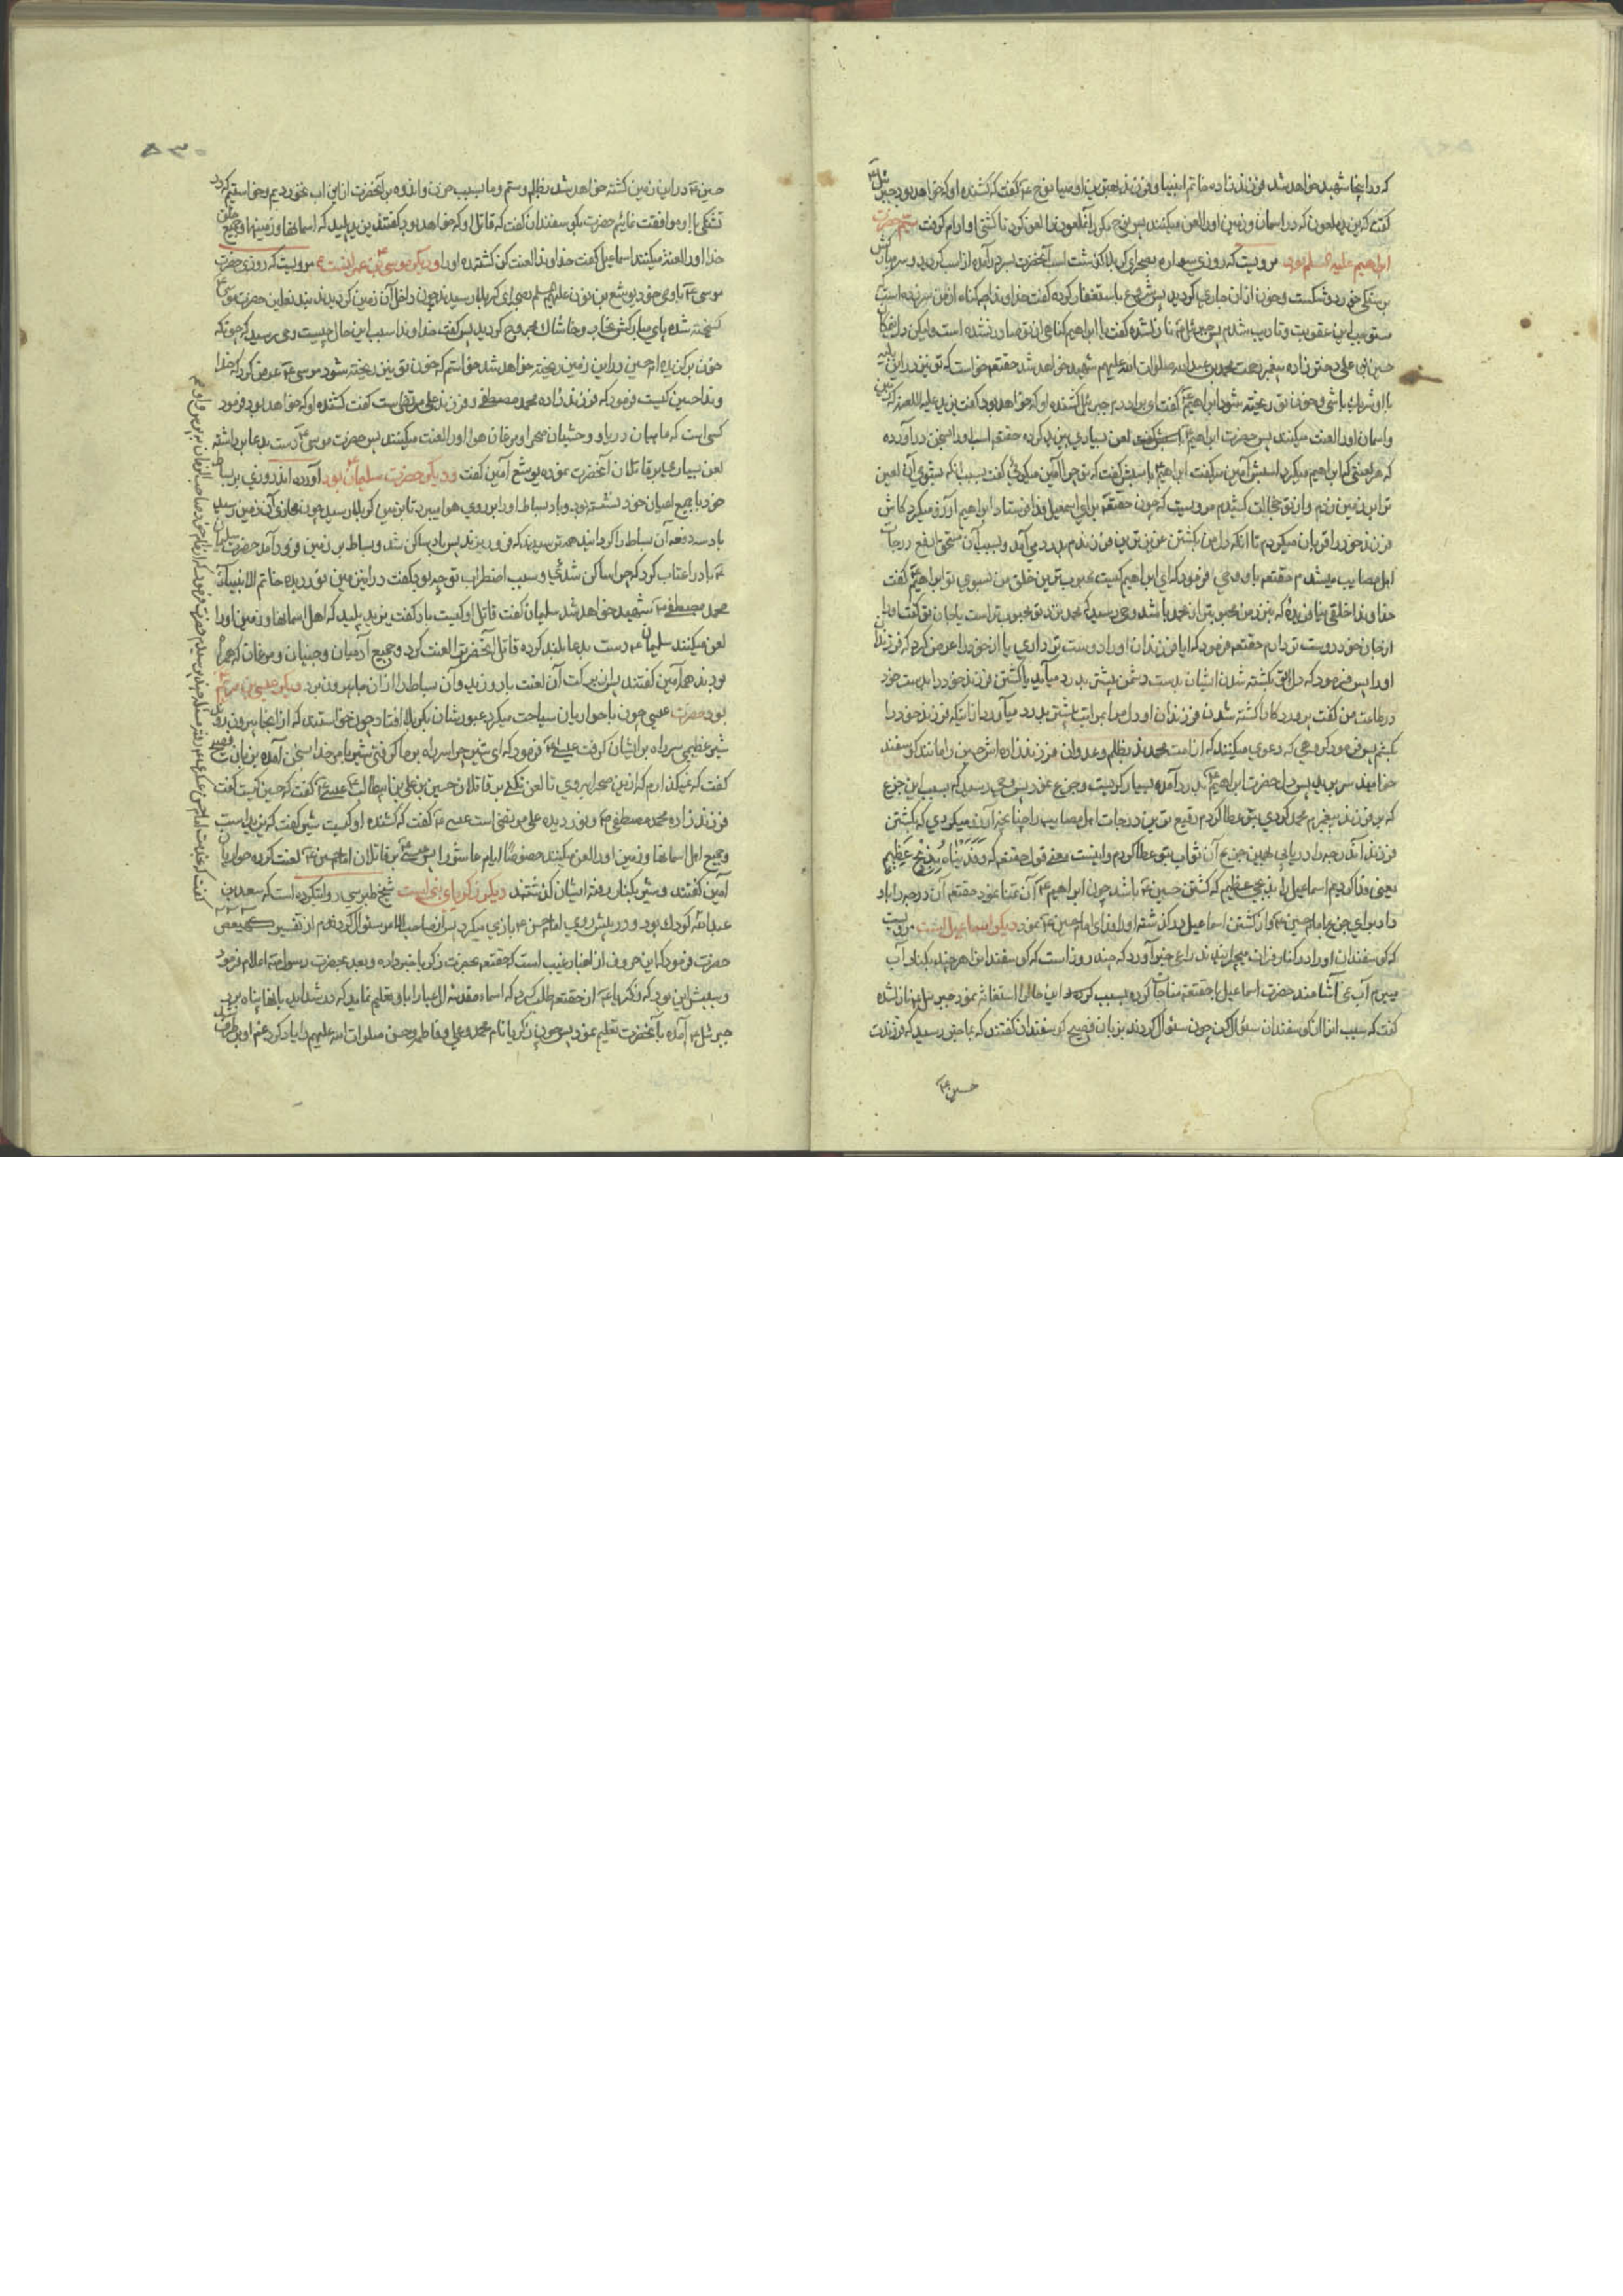 که در اینجا شهید خواهد شد فرزند زاده خاتم انبیا و فرزند بهترین اوصیا نوح ع گفت که کشنده او که خواهد بود جبرئیل ع
گفت که یزید ملعون که در اسمان و زمین او را لعن میکنند پس نوح مکرر آنملعون را لعن کرد تا کشتی او آرام گرفت سیم حضرت
ابراهیم علیه السلم بود مرویست که روزی سواره بصحرای کربلا گذشت اسب آنحضرت بسر درآمده از اسب گردید و سر مبارکش
بر سنگی خورد و شکست و خون از آن جاری گردید پس شروع باستغفار کرده گفت خداوندا چه گناه از من سر زده است
مستوجب این عقوبت و تادیب شدم پس جبرئیل ع نازل شده گفت یا ابراهیم گناهی از تو صادر نشده است ولیکن در اینمکان
حسین بن علی دختر زاده پیغمبر رحمت محمد بن عبدالله صلوات الله علیهم شهید خواهد شد حقتعه خواست که تو نیز در این بلیه
با او شریک باشی و خون تو ریخته شود ابراهیم ع گفت ای برادرم جبرئیل کشنده او که خواهد بود گفت یزید علیه اللعنه که زمین
و اسمان او را لعنت میکنند پس حضرت ابراهیم ع لعن بسیاری بیزید کرده حقتعه اسب او را بسخن درآورده
که هر لعنتی که ابراهیم میکرد اسبش آمین میگفت ابراهیم باسبش گفت که تو چرا آمین میگوئی گفت بسبب انکه بشومی آن لعین
ترا بر زمین زدم و از تو خجالت کشیدم مرویست که چون حقتعه برای اسمعیل فدا فرستاد ابراهیم آرزو میکرد کاش
فرزند خود را قربان میکردم تا انکه دل من بکشتن عزیزترین فرزندم بدرد می‌آمد و بسبب آن مستحق ارفع درجات
اهل مصایب میشدم حقتعه باو وحی فرمود که ای ابراهیم کیست محبوب‌ترین خلق من بسوی تو ابراهیم گفت
خداوندا خلقی نیافریده که نزد من محبوبتر از محمد باشد وحی رسید که محمد نزد تو محبوبتر است یا جان تو گفت او را
از جان خود دوست تر دارم حقتعه فرمود که ایا فرزندان او را دوست تر داری یا از خود را عرض کرد که فرزندان
او را پس فرمود که دل تو بکشته شدن ایشان بدست دشمن بیشتر بدرد میآید یا کشتن فرزند خود را بدست خود
در طاعت من گفت پروردگارا کشته شدن فرزندان او دل مرا بمراتب بیشتر بدرد میآورد از اینکه فرزند خود را
بکشم پس فرمود که جمعی که دعوی میکنند که از امت محمدند بظلم و عدوان فرزند زاده اش حسین را مانند گوسفند
خواهند سر برید پس دل حضرت ابراهیم ع بدرد آمده بسیار گریست و جزع نمود پس وحی رسید که بسبب این جزع
که بر فرزند پیغمبرم محمد کردی بتو عطا کردم رفیع ترین درجات اهل مصایب را چنانچه آرزو میکردی که بکشتن
فرزند آندرجه را دریابی بهمین جزع آن ثواب بتو عطا کردم و اینست معنی قول حقتعه که وَفَدَیْنَاهُ بِذِبْحٍ عَظِیمٍ
یعنی فدا کردیم اسماعیل را بذبحی عظیم که کشتن حسین ع باشد چون ابراهیم ع آن تمنا نمود حقتعه آن درجه را باو
داد برای جزع بامام حسین ع و از کشتن اسماعیل درگذشته او را فدای امام حسین ع نمود دیگر اسماعیل است مرویست
که گوسفندان او را در کنار فرات میچرانیدند راعی خبر آورد که چند روز است که گوسفندان را هر چند بکنار آب
میبرم آب نمی آشامند حضرت اسماعیل با حقتعه مناجات کرده بسبب کرده از این حال استغاثه نمود جبرئیل ع نازل شده
گفت که سبب انرا از گوسفندان سئوال کن چون سئوال کردند بزبان فصیح گوسفندان گفتند که بما خبر رسیده که فرزندت
حسین ع
۵۳۰
حسین ع در این زمین کشته خواهد شد بظلم و ستم و ما بسبب حزن و اندوه بر آنحضرت از این اب نخوردیم و خواستیم که در
تشنگی با او موافقت نمائیم حضرت بگوسفندان گفت که قاتل او که خواهد بود گفتند یزید پلید که اسمانها و زمینها و جمیع خلق
خدا او را لعنت میکنند اسماعیل گفت خداوندا لعنت کن کشنده او را و دیگر موسی بن عمرانست مرویست که روزی حضرت
موسی ع با وصی خود یوشع بن نون علیهم السلم بصحرای کربلا رسیدند چون داخل آن زمین گردیدند بند نعلین حضرت موسی ع
گسیخته شده پای مبارکش بخار و خاشاک مجروح گردید پس گفت خداوندا سبب این حال چیست وحی رسید که چونکه
خون برگزیده ام حسین در این زمین ریخته خواهد شد خواستم که خون تو نیز ریخته شود موسی ع عرض کرد که خدا
وندا حسین کیست فرمود که فرزند زاده محمد مصطفی و فرزند علی مرتضی است گفت کشنده او که خواهد بود فرمود
کسی است که ماهیان دریا و وحشیان صحرا و مرغان هوا او را لعنت میکنند پس حضرت موسی ع دست بدعا برداشته
لعن بسیار بر قاتلان آنحضرت نموده یوشع آمین گفت و دیگر حضرت سلیمان بود آورده اند روزی بر بساط
خود با جمیع اعیان خود نشسته بود و باد بساط او را بر روی هوا میبرد تا بزمین کربلا رسید چون محاذی آن زمین رسید
باد سه دفعه آن بساط را گردانید همه ترسیدند که فرو ریزند پس باد ساکن شد و بساط بر زمین فرود آمد حضرت سلیمان
ع باد را عتاب کرد که چرا ساکن شدی و سبب اضطراب تو چه بود گفت در اینزمین نور دیده خاتم الانبیا
محمد مصطفی ص شهید خواهد شد سلیمان گفت قاتل او کیست باد گفت یزید پلید که اهل اسمانها و زمین او را
لعن میکنند سلیمان ع دست بدعا بلند کرده قاتل آنحضرت را لعنت کرد و جمیع آدمیان و جنیان و مرغان که همراه
بودند همه آمین گفتند پس از برکت آن لعنت باد وزید و آن بساط را از ان جا بیرون برد دیگر عیسی بن مریم
بود حضرت عیسی چون با حواریان سیاحت میکرد عبورشان بکربلا افتاد چون خواستند که از انجا بیرون روند
شیر عظیمی سر راه بر ایشان گرفت عیسی ع فرمود که ای شیر چرا سر راه بر ما گرفتی شیر بامر خدا بسخن آمده بزبان فصیح
گفت که نمیگذارم که از این صحرا بروی تا لعن نکنی بر قاتلان حسین بن علی بن ابیطالب عیسی ع گفت که حسین کیست گفت
فرزند زاده محمد مصطفی ص و نور دیده علی مرتضی است عیسی ع گفت که کشنده او کیست شیر گفت که یزید است
و جمیع اهل اسمانها و زمین او را لعن میکنند خصوصًا ایام عاشورا پس عیسی ع بر قاتلان امام حسین ع لعنت کرده حواریان
آمین گفتند و شیر بکنار رفته ایشان گذشتند دیگر زکریای نبی است شیخ طبرسی روایتکرده است که سعد بن
عبدالله کودک بود و در پیش روی امام حسن ع بازی میکرد پس از صاحب الامر سئوال کردند از تفسیر کهیعص
حضرت فرمود که این حروف از اخبار غیب است که حقتعه بحضرت زکریا خبر داده و بعد بحضرت رسول ص اعلام فرمود
و سببش این بود که زکریا ع از حقتعه طلب کرد که اسماء مقدسه ال عبا را باو تعلیم نماید که در شداید بانها پناه برد
جبرئیل ع آمده بآنحضرت تعلیم نمود پس چون زکریا نام محمد و علی و فاطمه و حسن صلوات الله علیهم را یاد کرد غم او برطرف